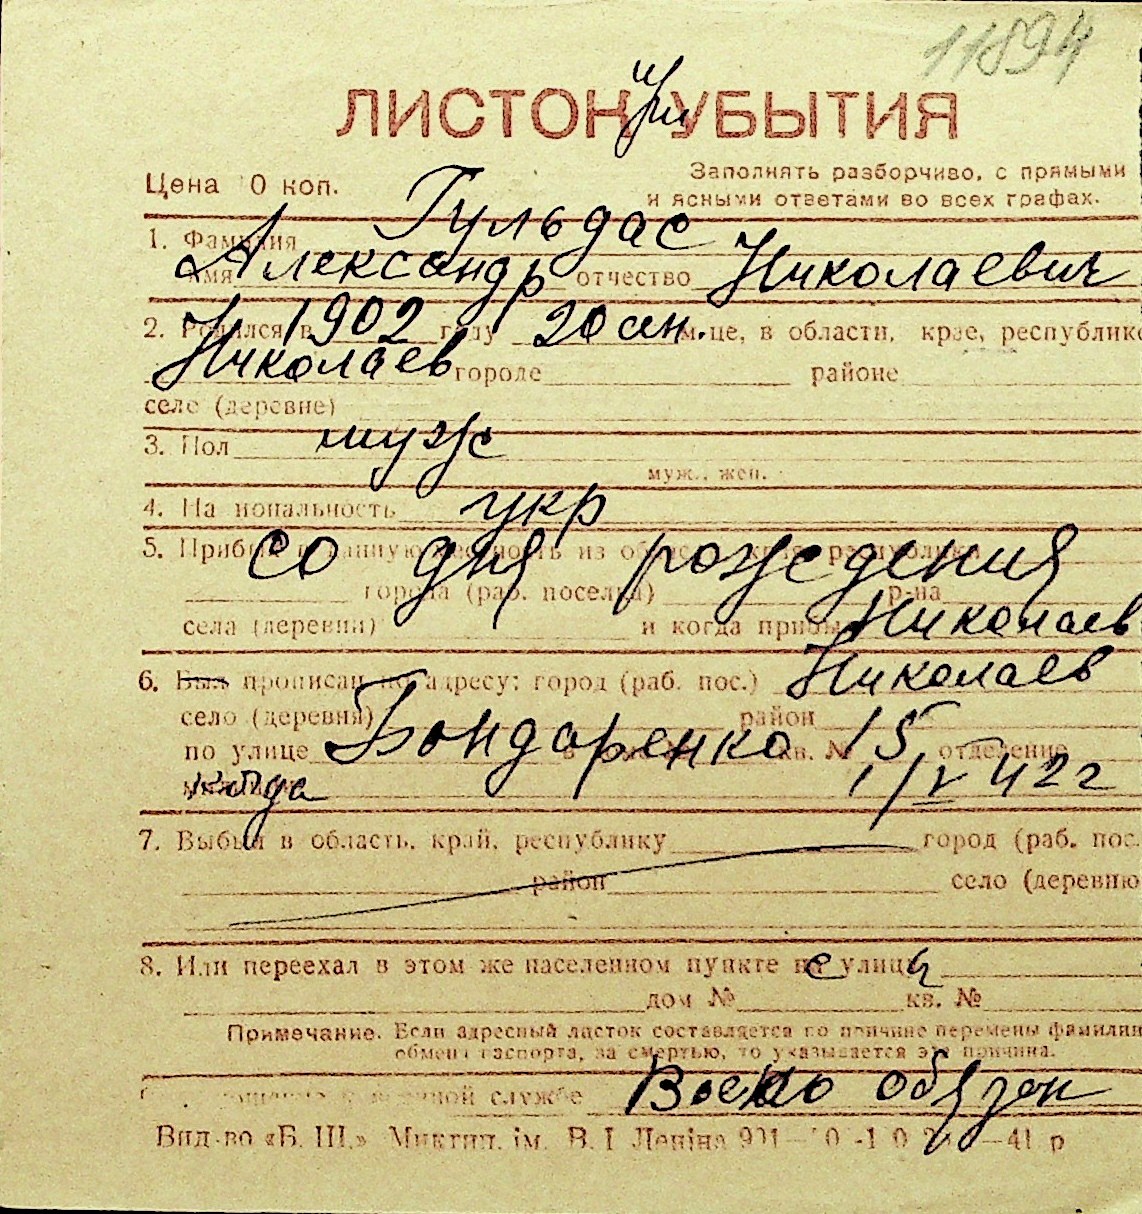 11894
ЛИСТОК при УБЫТИЯ
Цена 10 коп. Заполнять разборчиво, с прямыми
и ясными ответами во всех графах.
1. Фамилия Гульдас
имя Александр отчество Николаевич
2. Родился в 1902 году 20 сен. м-це, в области, крае, республике
Николаев городе районе
село (деревне)
3. Пол муж
муж., жен.
4. Национальность укр
5. Прибыл в данную местность из области, края, республики
со дня рождения
города (раб. поселка) р-на
села (деревни) и когда прибыл Николаев
6. Был прописан по адресу: город (раб. пос.) Николаев
село (деревня) район
по улице Бондаренко кв. № 15 отделение
милиции когда 1/V 42 г
7. Выбыл в область, край, республику город (раб. пос.
район село (деревню
8. Или переехал в этом же населенном пункте с улицы
дом № кв. №
Примечание. Если адресный листок составляется по причине перемены фамилии
обмена паспорта, за смертью, то указывается эта причина.
службе Военно обязан
Вид-во «Б. Ш.» Миктип. ім. В. І Леніна 41 р